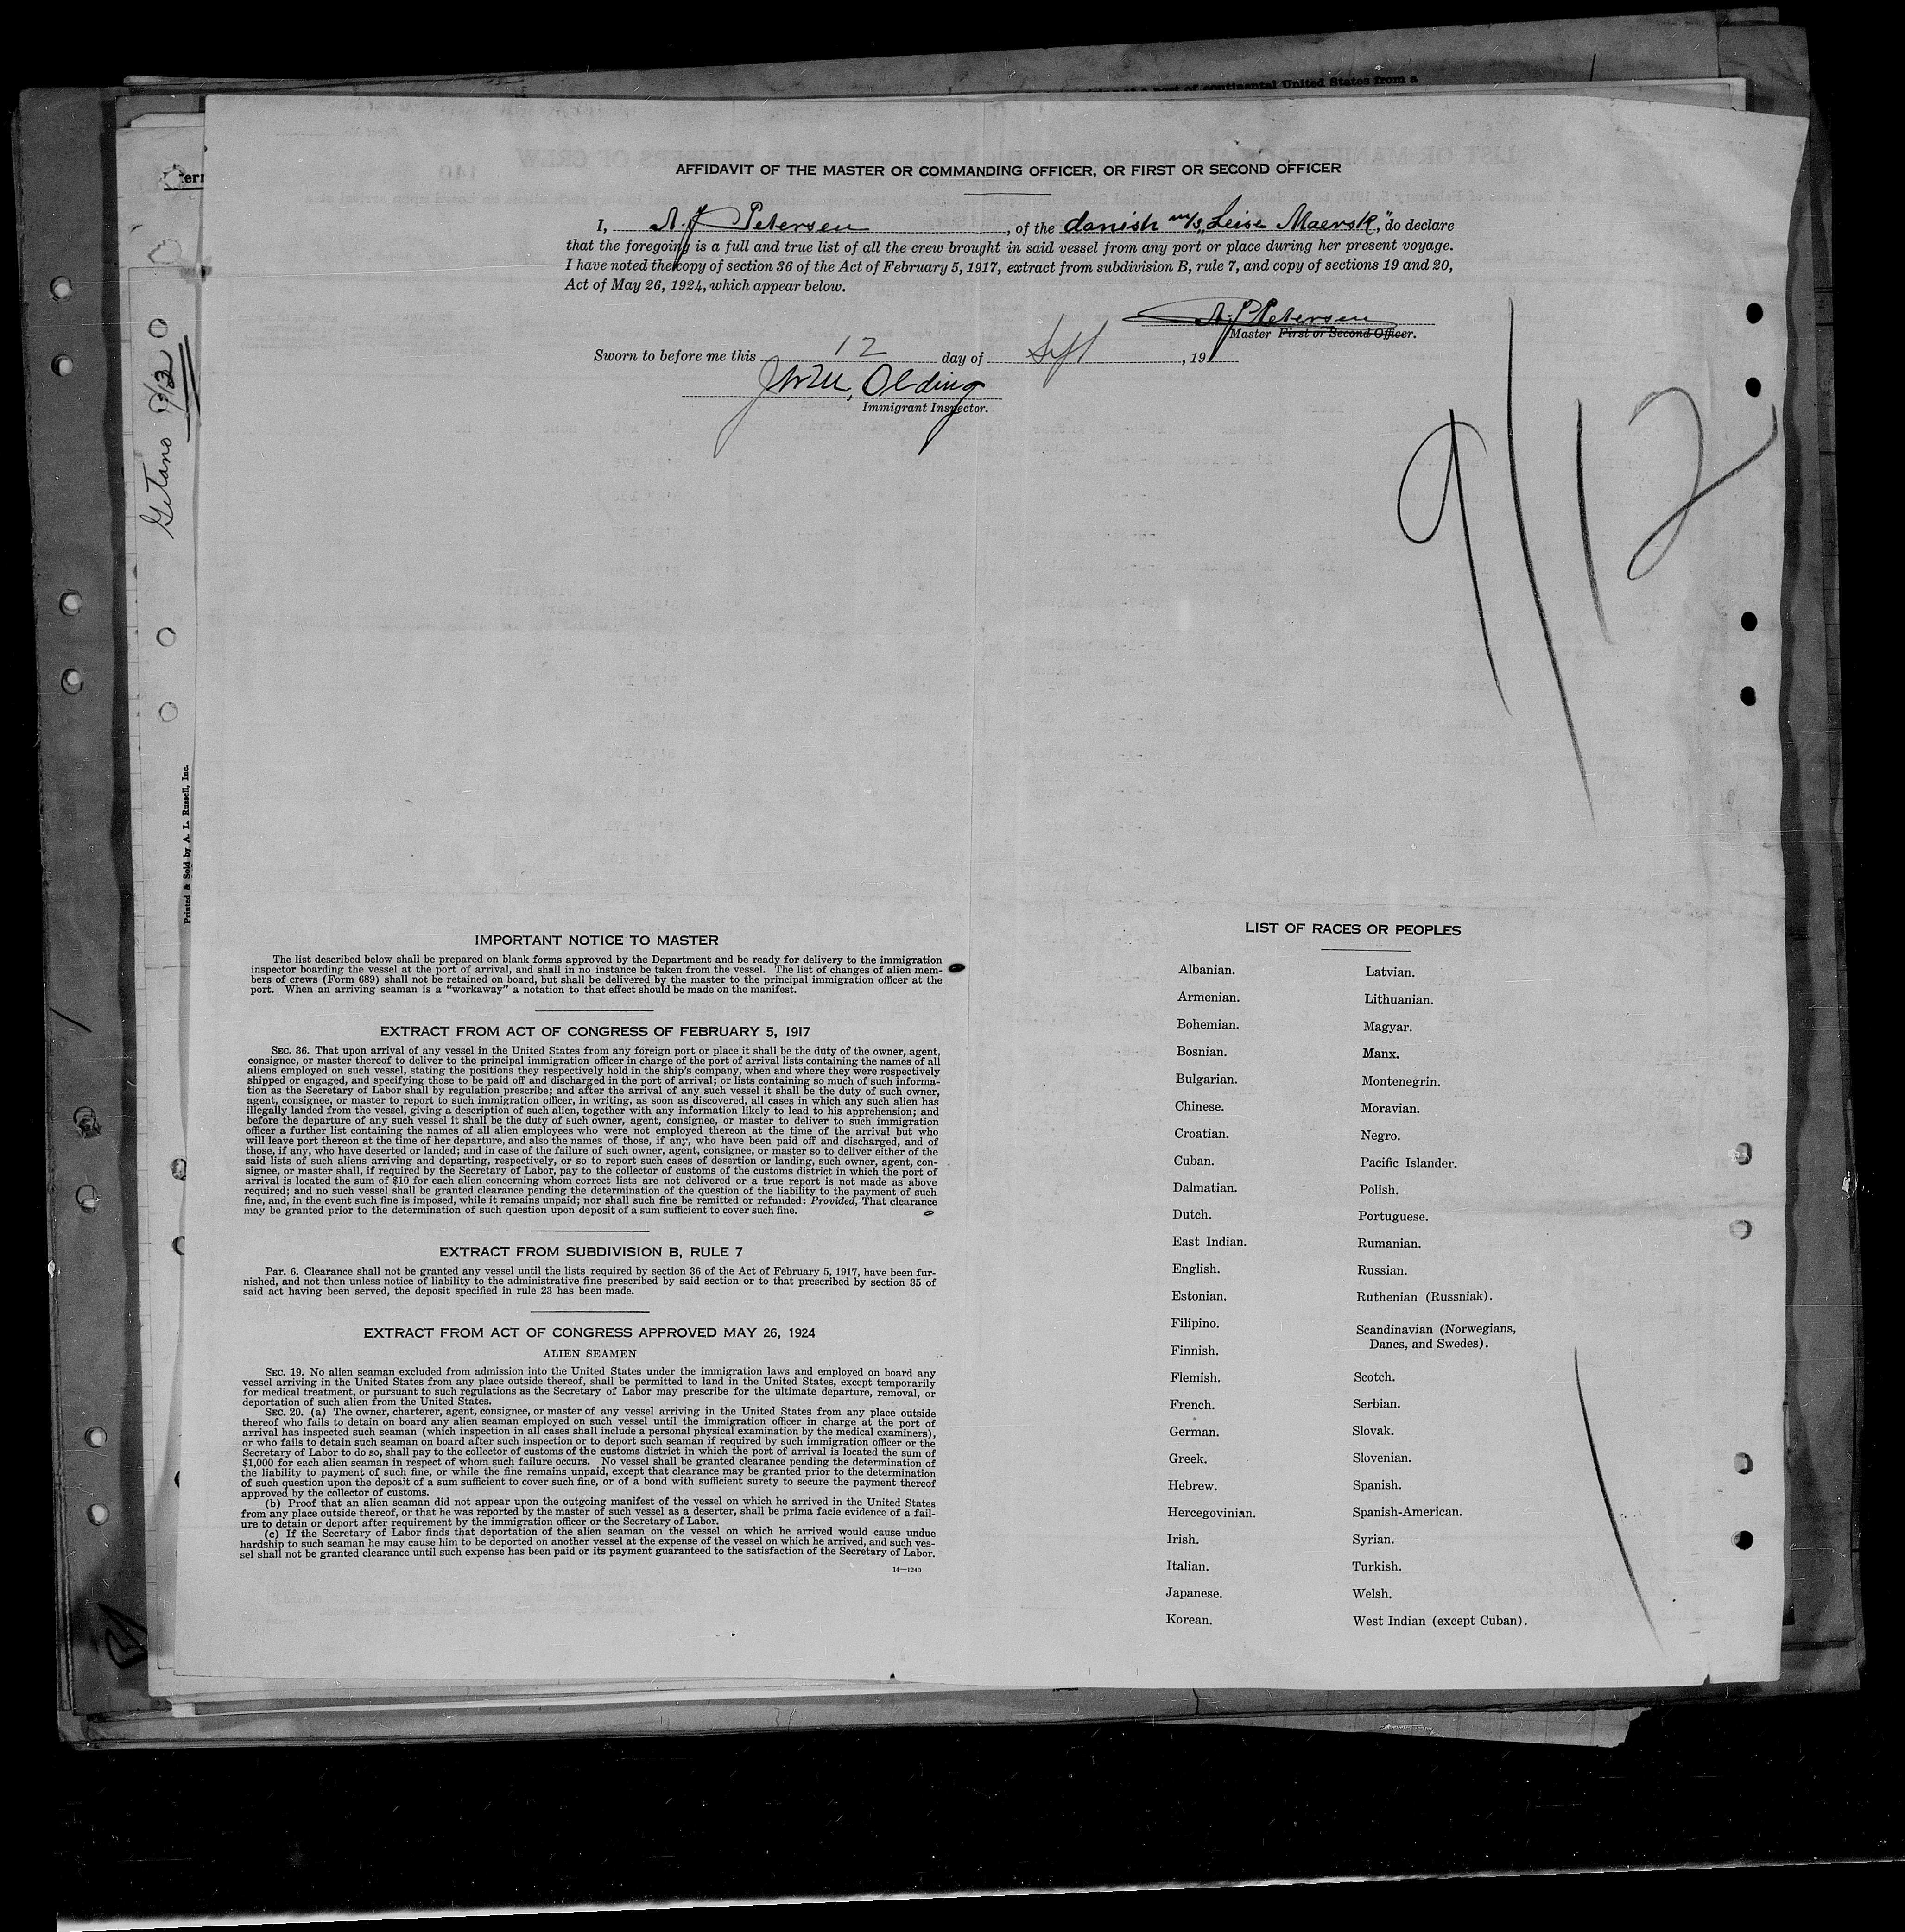 continental United States from a
AFFIDAVIT OF THE MASTER OR COMMANDING OFFICER, OR FIRST OR SECOND OFFICER
I, A. J. Petersen, of the danish m/s „Leise Maersk", do declare
that the foregoing is a full and true list of all the crew brought in said vessel from any port or place during her present voyage.
I have noted the copy of section 36 of the Act of February 5, 1917, extract from subdivision B, rule 7, and copy of sections 19 and 20,
Act of May 26, 1924, which appear below.
A. J. Petersen
Master First or Second Officer.
Sworn to before me this 12 day of Sept, 19
Olding
Immigrant Inspector.
9/12
Getano 9/12
Printed & Sold by A. L. Russell, Inc.
IMPORTANT NOTICE TO MASTER
The list described below shall be prepared on blank forms approved by the Department and be ready for delivery to the immigration
inspector boarding the vessel at the port of arrival, and shall in no instance be taken from the vessel. The list of changes of alien mem-
bers of crews (Form 689) shall not be retained on board, but shall be delivered by the master to the principal immigration officer at the
port. When an arriving seaman is a "workaway" a notation to that effect should be made on the manifest.
EXTRACT FROM ACT OF CONGRESS OF FEBRUARY 5, 1917
SEC. 36. That upon arrival of any vessel in the United States from any foreign port or place it shall be the duty of the owner, agent,
consignee, or master thereof to deliver to the principal immigration officer in charge of the port of arrival lists containing the names of all
aliens employed on such vessel, stating the positions they respectively hold in the ship's company, when and where they were respectively
shipped or engaged, and specifying those to be paid off and discharged in the port of arrival; or lists containing so much of such informa-
tion as the Secretary of Labor shall by regulation prescribe; and after the arrival of any such vessel it shall be the duty of such owner,
agent, consignee, or master to report to such immigration officer, in writing, as soon as discovered, all cases in which any such alien has
illegally landed from the vessel, giving a description of such alien, together with any information likely to lead to his apprehension; and
before the departure of any such vessel it shall be the duty of such owner, agent, consignee, or master to deliver to such immigration
officer a further list containing the names of all alien employees who were not employed thereon at the time of the arrival but who
will leave port thereon at the time of her departure, and also the names of those, if any, who have been paid off and discharged, and of
those, if any, who have deserted or landed; and in case of the failure of such owner, agent, consignee, or master so to deliver either of the
said lists of such aliens arriving and departing, respectively, or so to report such cases of desertion or landing, such owner, agent, con-
signee, or master shall, if required by the Secretary of Labor, pay to the collector of customs of the customs district in which the port of
arrival is located the sum of $10 for each alien concerning whom correct lists are not delivered or a true report is not made as above
required; and no such vessel shall be granted clearance pending the determination of the question of the liability to the payment of such
fine, and, in the event such fine is imposed, while it remains unpaid; nor shall such fine be remitted or refunded: Provided, That clearance
may be granted prior to the determination of such question upon deposit of a sum sufficient to cover such fine.
EXTRACT FROM SUBDIVISION B, RULE 7
PAR. 6. Clearance shall not be granted any vessel until the lists required by section 36 of the Act of February 5, 1917, have been fur-
nished, and not then unless notice of liability to the administrative fine prescribed by said section or to that prescribed by section 35 of
said act having been served, the deposit specified in rule 23 has been made.
EXTRACT FROM ACT OF CONGRESS APPROVED MAY 26, 1924
ALIEN SEAMEN
SEC. 19. No alien seaman excluded from admission into the United States under the immigration laws and employed on board any
vessel arriving in the United States from any place outside thereof, shall be permitted to land in the United States, except temporarily
for medical treatment, or pursuant to such regulations as the Secretary of Labor may prescribe for the ultimate departure, removal, or
deportation of such alien from the United States.
SEC. 20. (a) The owner, charterer, agent, consignee, or master of any vessel arriving in the United States from any place outside
thereof who fails to detain on board any alien seaman employed on such vessel until the immigration officer in charge at the port of
arrival has inspected such seaman (which inspection in all cases shall include a personal physical examination by the medical examiners),
or who fails to detain such seaman on board after such inspection or to deport such seaman if required by such immigration officer or the
Secretary of Labor to do so, shall pay to the collector of customs of the customs district in which the port of arrival is located the sum of
$1,000 for each alien seaman in respect of whom such failure occurs. No vessel shall be granted clearance pending the determination of
the liability to payment of such fine, or while the fine remains unpaid, except that clearance may be granted prior to the determination
of such question upon the deposit of a sum sufficient to cover such fine, or of a bond with sufficient surety to secure the payment thereof
approved by the collector of customs.
(b) Proof that an alien seaman did not appear upon the outgoing manifest of the vessel on which he arrived in the United States
from any place outside thereof, or that he was reported by the master of such vessel as a deserter, shall be prima facie evidence of a fail-
ure to detain or deport after requirement by the immigration officer or the Secretary of Labor.
(c) If the Secretary of Labor finds that deportation of the alien seaman on the vessel on which he arrived would cause undue
hardship to such seaman he may cause him to be deported on another vessel at the expense of the vessel on which he arrived, and such ves-
sel shall not be granted clearance until such expense has been paid or its payment guaranteed to the satisfaction of the Secretary of Labor.
14—1240
LIST OF RACES OR PEOPLES
Albanian.
Armenian.
Bohemian.
Bosnian.
Bulgarian.
Chinese.
Croatian.
Cuban.
Dalmatian.
Dutch.
East Indian.
English.
Estonian.
Filipino.
Finnish.
Flemish.
French.
German.
Greek.
Hebrew.
Hercegovinian.
Irish.
Italian.
Japanese.
Korean.
Latvian.
Lithuanian.
Magyar.
Manx.
Montenegrin.
Moravian.
Negro.
Pacific Islander.
Polish.
Portuguese.
Rumanian.
Russian.
Ruthenian (Russniak).
Scandinavian (Norwegians,
Danes, and Swedes).
Scotch.
Serbian.
Slovak.
Slovenian.
Spanish.
Spanish-American.
Syrian.
Turkish.
Welsh.
West Indian (except Cuban).